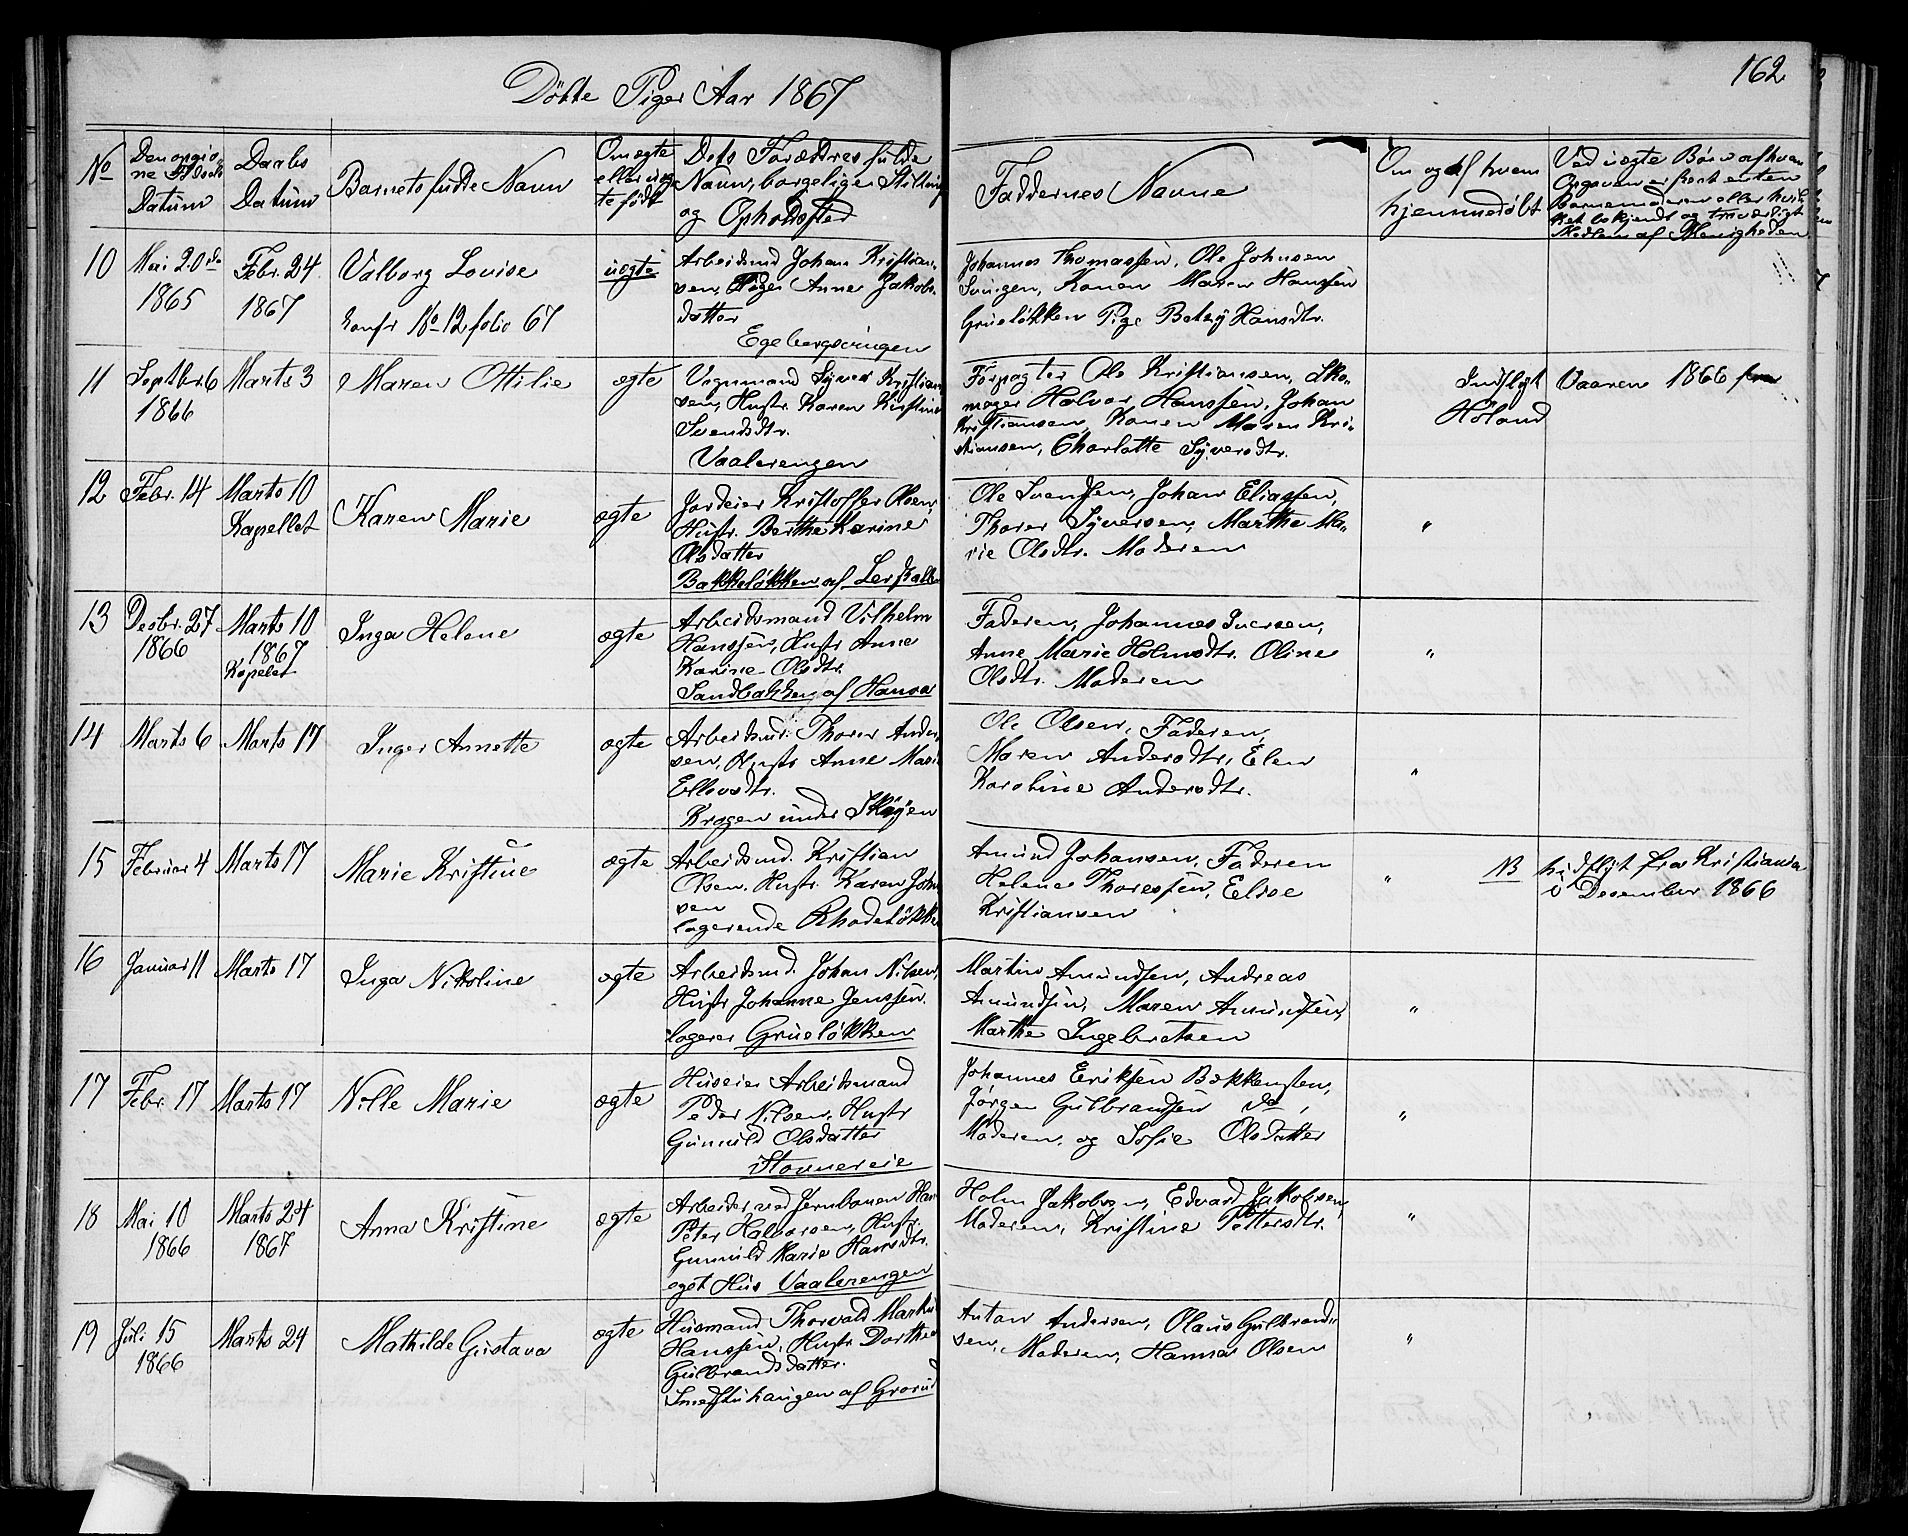 162
Döbte Piger Aar 1867
No
Den angiv
ne Födsels
Datum
Daabs
Datum
Barnets fulde Navn
Om ægte
eller uæg
te födt
Dets Forældres fulde
Navn, borgelige Stilling
og Opholdsted
Faddernes Navne
Om og af hvem
hjemmedöbt
Ved uægte Börn af hvem
Opgaven er
Barnemoderen eller
bekjendt og troværdigt
Medlem af Menigheden
10
Mai 20de
1865
Febr. 24
1867
Valborg Louise
konfr No 12 folio 67
uægte
Arbeidsmd Johan Kristian-
sen, Pige Anne Jakobs-
datter
Egebergsvingen
Johannes Thomassen, Ole Johnsen
Svingen, Konen Maren Hanssen
Grüeløkken Pige Betzy Hansdtr.
11
Septbr 6
1866
Marts 3
Maren Ottilie
ægte
Vognmand Syver Kristian
sen, Hustr. Karen Kirstine
Svendsdtr.
Vaalerengen
Forpagter Ole Kristiansen, Sko-
mager Halvor Hanssen, Johan
Kristiansen, Konen Maren Kri-
stiansen, Charlotte Syversdtr.
Indflyt Vaaren 1866 fra
Höland
12
Febr. 14
Marts 10
Kapellet
Karen Marie
ægte
Jordeier Kristoffer Olsen,
Hustr. Berthe Karine
Olsdatter
Bakkeløkken af
Ole Svendsen, Johan Eliassen,
Thorer Syversen, Marthe Ma-
rie Olsdtr. Moderen
"
13
Desbr. 27
1866
Marts 10
1867
Kapelet
Inga Helene
ægte
Arbeidsmand Vilhelm
Hanssen, Hustr Anne
Karine Olsdtr.
Sandbakken af
Faderen, Johannes Iversen,
Anne Marie Holmsdtr. Oline
Olsdtr. Moderen
"
14
Marts 6
Marts 17
Inger Annette
ægte
Arbeidsmd. Thorer Ander
sen, Hustr Anne Marie
Ellevsdtr.
Kragen under Skøyen
Ole Olsen, Faderen,
Maren Andersdtr, Elen
Karoline Andersdtr.
"
15
Februar 4
Marts 17
Marie Kristine
ægte
Arbeidsmd. Kristian
Olsen, Hustr. Karen John
sen
logerende Rhodeløkke
Amund Johansen, Faderen
Helene Thoressen, Elise
Kristiansen
"
NB hidflyt fra Kristiania
i Desember 1866
16
Januar 11
Marts 17
Inga Nikoline
ægte
Arbeidsmd. Johan Nilsen,
Hustr Johanne Jenssen.
logerer Grueløkken
Martin Amundsen, Andreas
Amundsen, Maren Amundsen,
Marthe Ingebretsen
"
17
Febr. 17
Marts 17
Nille Marie
ægte
Huseier Arbeidsmand
Peder Nilsen, Hustr
Gunnild Olsdatter
Stovnereie
Johannes Eriksen Bakkensten,
Jørgen Gulbrandsen do,
Moderen, og Sofie Olsdatter
"
18
Mai 10
1866
Marts 24
1867
Anna Kristine
ægte
Arbeider ved Jernbanen Han
Peter Halvorsen, Hustr.
Gunnild Marie Hansdtr.
eget Hus Vaalerengen
Holm Jakobsen, Edvard Jakobsen,
Moderen, Kristine Pettersdtr.
"
19
Juli 15
1866
Marts 24
Mathilde Gustava
ægte
Husmand Thorvald Markus
Hanssen, Hustr Dorthea
Gulbrandsdatter.
Smedstuhaugen af Grorud
Anton Andersen, Olaus Gulbrand-
sen, Moderen, Hanna Olsen
"